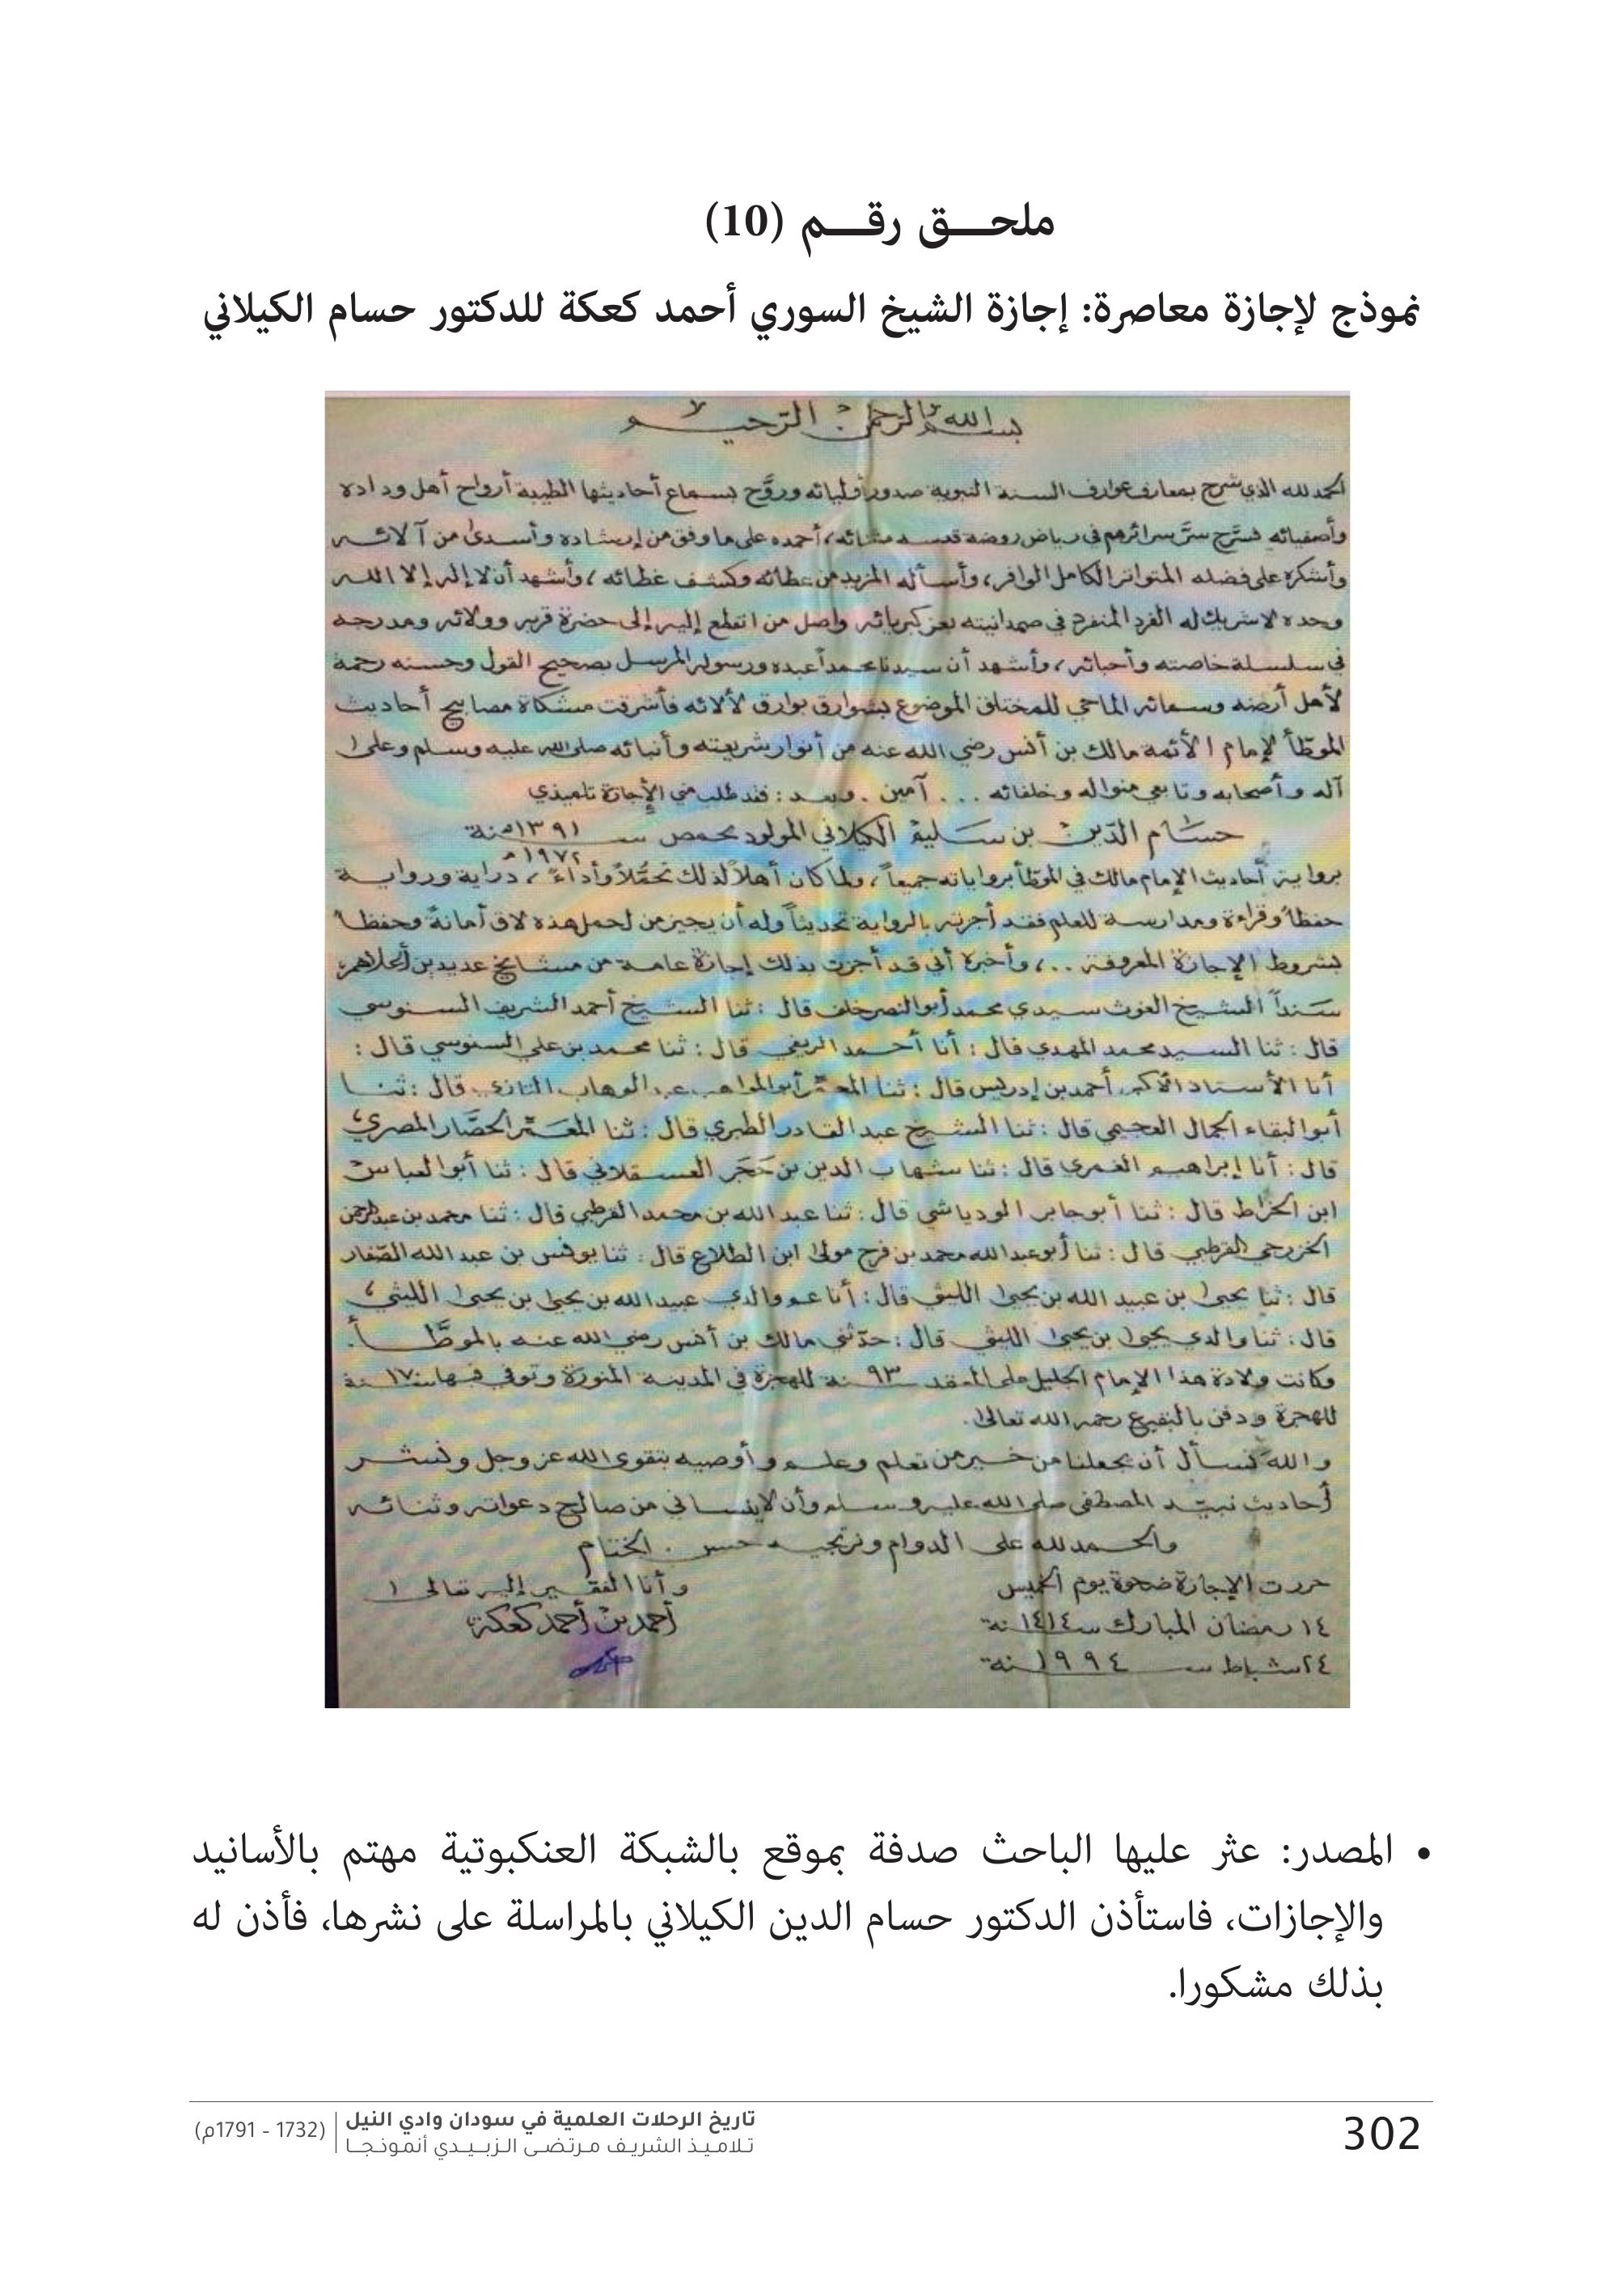 ملحق رقم (10)
نموذج لإجازة معاصرة: إجازة الشيخ السوري أحمد كعكة للدكتور حسام الكيلاني
بسم الله الرحمن الرحيم
الحمد لله الذي شرح بمعارف عوارف السنة النبوية صدور أوليائه وروَّح بسماع أحاديثها الطيبة أرواح أهل وداده
وأصفيائه فسرّح سرّ سرائرهم في رياض روضة قدسه وثنائه، أحمده على ما وفق من إرشاده وأسدى من آلائه
وأشكره على فضله المتواتر الكامل الوافر، وأسأله المزيد من عطائه وكشف غطائه، وأشهد أن لا إله إلا الله
وحده لا شريك له الفرد المنفرد في صمدانيته بعز كبريائه واصل من انقطع إليه إلى حضرة قربه وولائه ومدرجه
في سلسلة خاصته وأحبائه، وأشهد أن سيدنا محمداً عبده ورسوله المرسل بصحيح القول وحسنه رحمة
لأهل أرضه وسمائه الماحي للمختلق الموضوع بشوارق بوارق لألائه فأشرقت مشكاة مصابيح أحاديث
الموطّأ لإمام الأئمة مالك بن أنس رضي الله عنه من أنوار شريعته وأنبائه صلى الله عليه وسلم وعلى
آله وأصحابه وتابعي منواله وخلفائه ... آمين . وبعد : فقد طلب مني الإجازة تلميذي
حسام الدين بن سليم الكيلاني المولود بحمص سنة ١٣٩١هـ
١٩٧٢م
برواية أحاديث الإمام مالك في الموطأ برواياته جميعاً، ولما كان أهلاً لذلك تحمُّلاً وأداءً، دراية ورواية
حفظاً وقراءة ومدارسة للعلم فقد أجزته بالرواية تحديثاً وله أن يجيز من لحمل هذه لاق أمانة وحفظا
بشروط الإجازة المعروفة ..، وأخبره أني قد أجزت بذلك إجازة عامة من مشايخ عديدين أجلاهم
سنداً الشيخ الغوث سيدي محمد أبو النصر خلف قال : ثنا الشيخ أحمد الشريف السنوسي
قال : ثنا السيد محمد المهدي قال : أنا أحمد الريفي قال : ثنا محمد بن علي السنوسي قال :
أنا الأستاذ الأكبر أحمد بن إدريس قال : ثنا المعمّر أبو المواهب عبد الوهاب التازي قال : ثنا
أبو البقاء الجمال العجيمي قال : ثنا الشيخ عبد القادر الطبري قال : ثنا المعمّر الحصّار المصري
قال : أنا إبراهيم الغمري قال : ثنا شهاب الدين بن حَجَر العسقلاني قال : ثنا أبو العباس
ابن الخراط قال : ثنا أبو جابر الودياشي قال : ثنا عبد الله بن محمد القرطبي قال : ثنا محمد بن عبد الرحمن
الخزرجي القرطبي قال : ثنا أبو عبد الله محمد بن فرج مولى ابن الطلاع قال : ثنا يونس بن عبد الله الصّفار
قال : ثنا يحيى بن عبيد الله بن يحيى الليثي قال : أنا عم والدي عبيد الله بن يحيى بن يحيى الليثي
قال : ثنا والدي يحيى بن يحيى الليثي قال : حدّثني مالك بن أنس رضي الله عنه بالموطّأ.
وكانت ولادة هذا الإمام الجليل على المعتمد سنة ٩٣ للهجرة في المدينة المنورة وتوفي فيها سنة ١٧٠
للهجرة ودفن بالبقيع رحمه الله تعالى.
والله نسأل أن يجعلنا من خير من تعلم وعلم وأوصيه بتقوى الله عز وجل ونشر
أحاديث نبيّه المصطفى صلى الله عليه وسلم وأن لا ينساني من صالح دعواته وثنائه
والحمد لله على الدوام ونرتجيه حسن الختام
حررت الإجازة ضحوة يوم الخميس
١٤ رمضان المبارك سنة ١٤١٤
٢٤ شباط سنة ١٩٩٤
وأنا الفقير إليه تعالى
أحمد بن أحمد كعكة
• المصدر: عثر عليها الباحث صدفة بموقع بالشبكة العنكبوتية مهتم بالأسانيد
والإجازات، فاستأذن الدكتور حسام الدين الكيلاني بالمراسلة على نشرها، فأذن له
بذلك مشكورا.
302
تاريخ الرحلات العلمية في سودان وادي النيل
تلاميذ الشريف مرتضى الزبيدي أنموذجا
(1732 - 1791م)